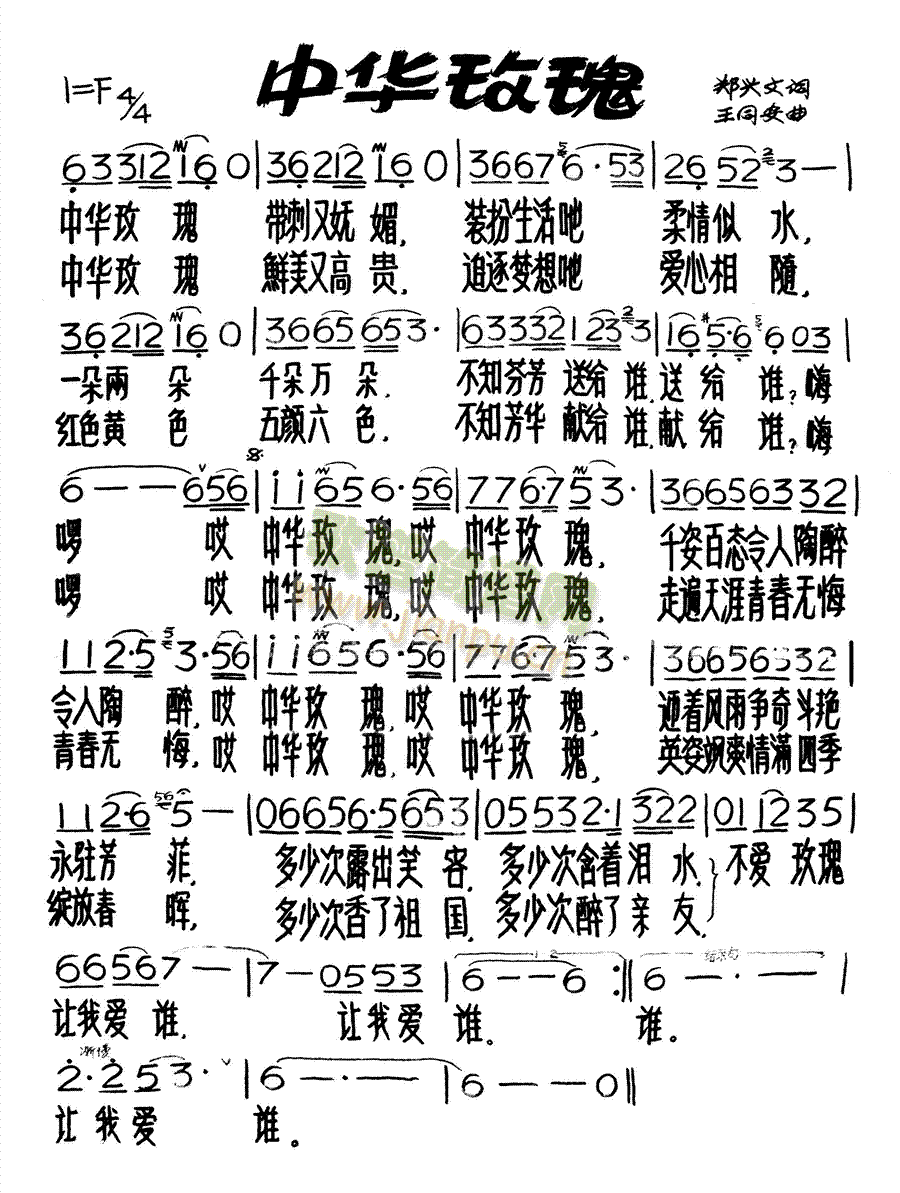 中华玫瑰
1=F 4/4
郑兴文词
王同安曲
63312 16 0 | 36212 16 0 | 3667 6·53 | 26 52 3 — |
中华玫瑰 带刺又妩媚, 装扮生活吔 柔情似水,
中华玫瑰 鮮美又高贵, 追逐梦想吔 爱心相隨,
36212 16 0 | 3665 653· | 63332 123 3 | 16 5·6 6 03 |
一朵兩朵 千朵万朵, 不知芬芳送给谁,送给谁?嗨
红色黄色 五颜六色, 不知芳华献给谁,献给谁?嗨
6 — — 656 | i i 656 6·56 | 7 7 6·7 5 3· | 36656332 |
啰 哎 中华玫瑰,哎 中华玫瑰, 千姿百态令人陶醉
啰 哎 中华玫瑰,哎 中华玫瑰, 走遍天涯青春无悔
1 1 2·5 3·56 | i i 656 6·56 | 7 7 6·7 5 3· | 36656332 |
令人陶醉,哎 中华玫瑰,哎 中华玫瑰, 迎着风雨争奇斗艳
青春无悔,哎 中华玫瑰,哎 中华玫瑰, 英姿飒爽情滿四季
1 1 2·6 5 — | 06656·5653 | 05532·1322 | 011235 |
永驻芳菲, 多少次露出笑容,多少次含着泪水, 不爱玫瑰
绽放春晖, 多少次香了祖国,多少次醉了亲友,
66567 — | 7 — 0553 | 6 — — 6 :|| 6 — · — |
1 2
结束句
让我爱谁, 让我爱谁。 谁。
渐慢
2·2 5 3· | 6 — · — | 6 — — 0 ||
让我爱谁。
歌谱简谱网
www.jianpu.cn